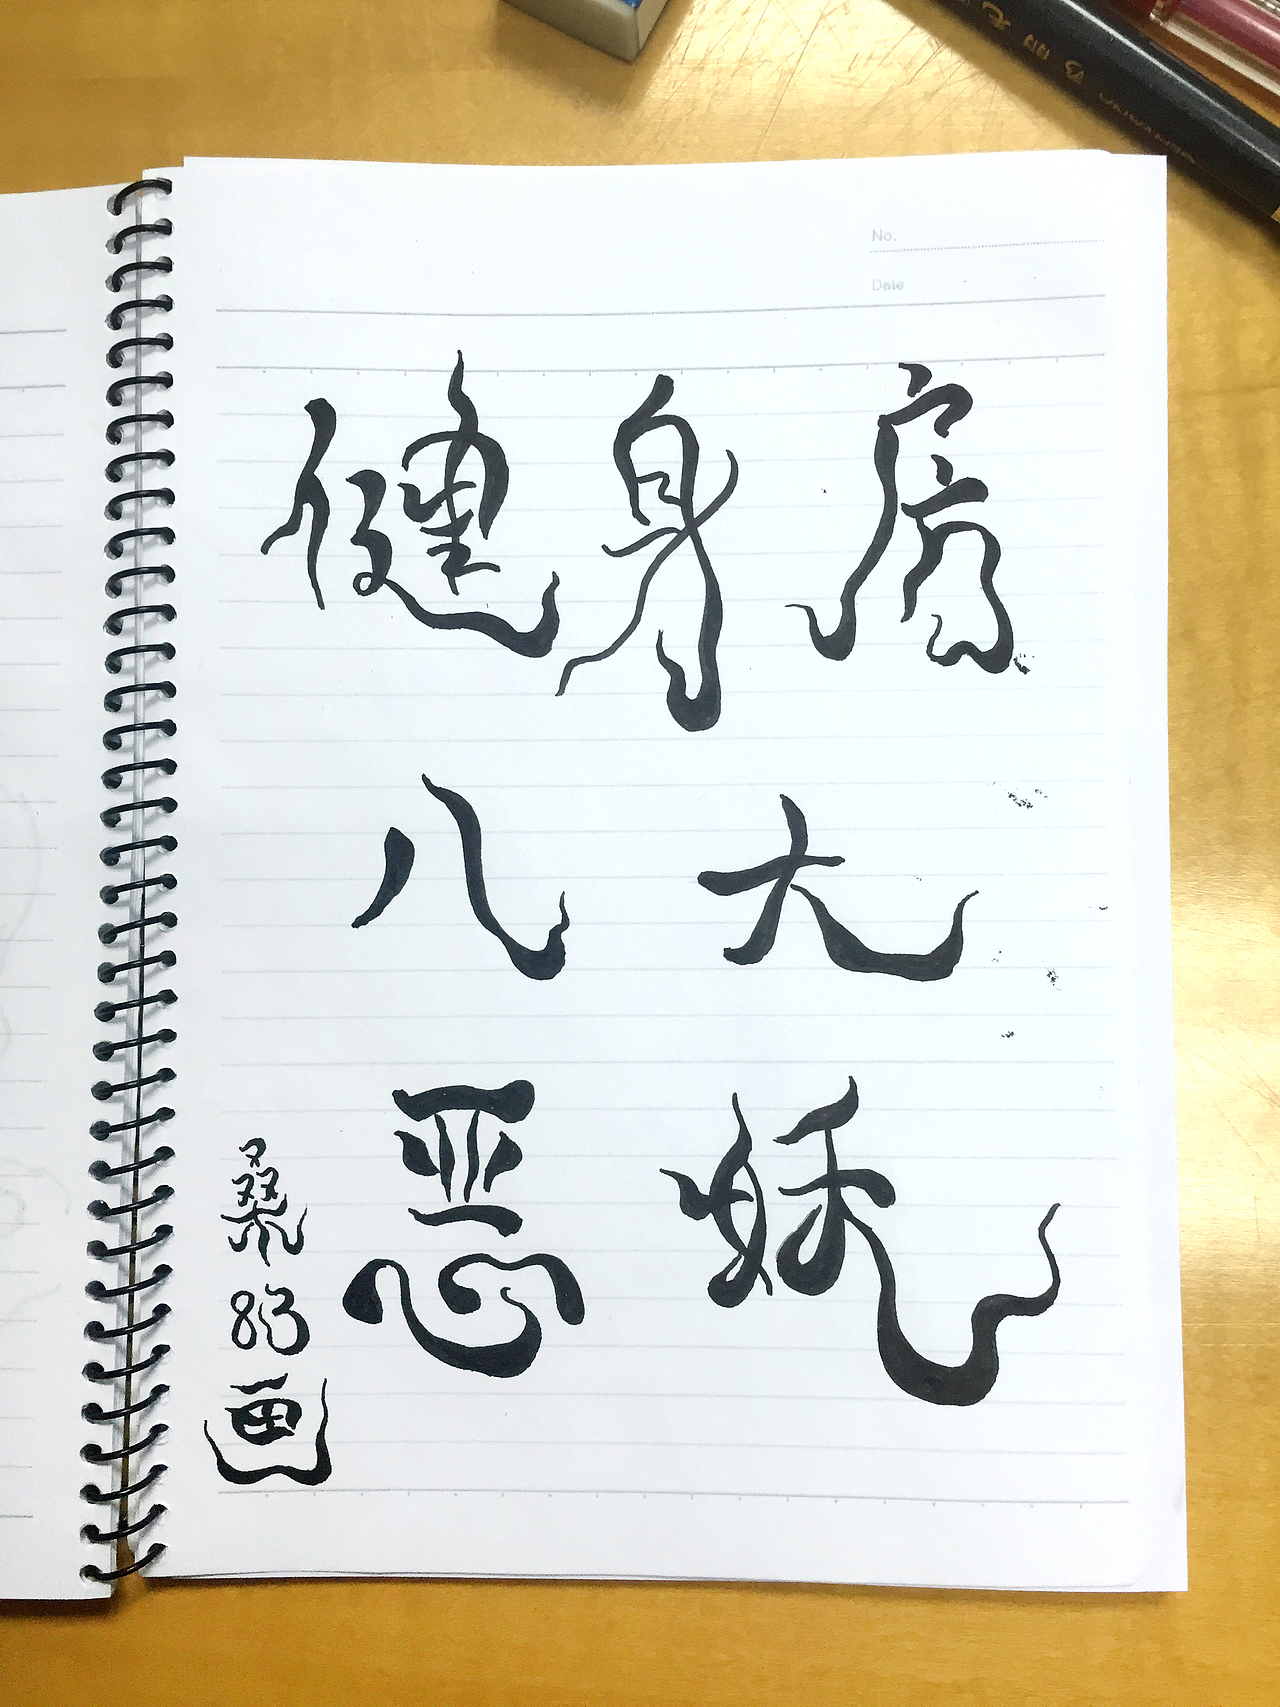 No.
Date
健身房
八大
恶妖
桑
画